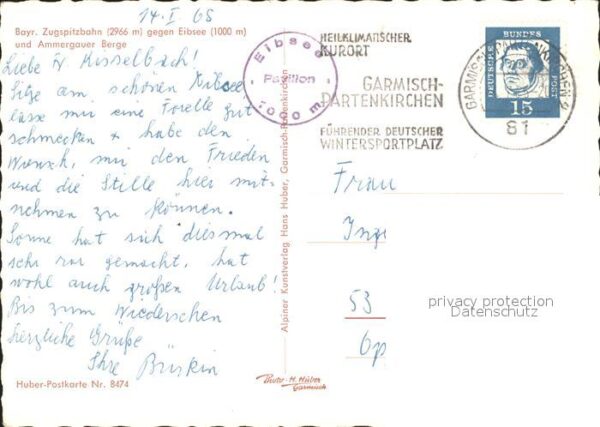 14.I.65
Bayr. Zugspitzbahn (2966 m) gegen Eibsee (1000 m)
und Ammergauer Berge
Liebe Fr Kisselbach!
Sitze am schönen Eibsee
lasse mir eine Forelle gut
schmecken + habe den
Wunsch, mir den Frieden
und die Stille hier mit-
nehmen zu können.
Sonne hat sich diesmal
sehr rar gemacht, hat
wohl auch großen Urlaub!
Bis zum Wiedersehen
herzliche Grüße
Ihre
Huber-Postkarte Nr. 8474
Eibsee
Pavillon
1000 m
HEILKLIMATISCHER
KURORT
GARMISCH-
PARTENKIRCHEN
FÜHRENDER DEUTSCHER
WINTERSPORTPLATZ
GARMISCH-PARTENKIRCHEN 2
81
DEUTSCHE BUNDESPOST
15
Alpiner Kunstverlag Hans Huber, Garmisch-Partenkirchen
Frau
Inge
53
Photo-H. Huber
Garmisch
privacy protection
Datenschutz